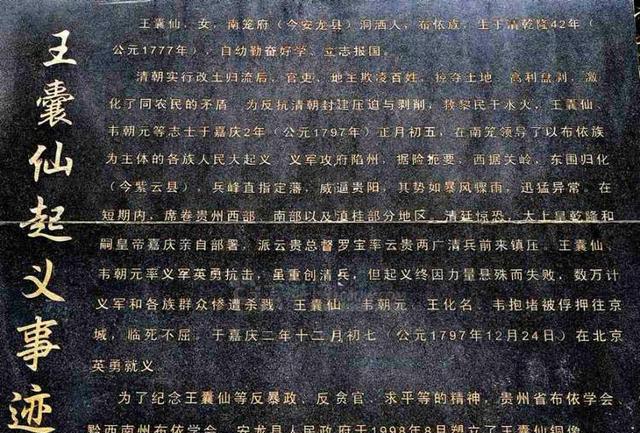 王囊仙起义事迹
王囊仙，女，南笼府（今安龙县）洞洒人，布依族，生于清乾隆42年（
公元1777年），自幼勤奋好学、立志报国。
清朝实行改土归流后，官吏、地主欺凌百姓，掠夺土地，高利盘剥，激
化了同农民的矛盾。为反抗清朝封建压迫与剥削，救黎民于水火，王囊仙、
韦朝元等志士于嘉庆2年（公元1797年）正月初五，在南笼领导了以布依族
为主体的各族人民大起义。义军攻府陷州，据险扼要，西据关岭，东围归化
（今紫云县），兵峰直指定藩，威逼贵阳，其势如暴风骤雨，迅猛异常。在
短期内，席卷贵州西部、南部以及滇桂部分地区，清廷惊恐，太上皇乾隆和
嗣皇帝嘉庆亲自部署，派云贵总督罗宝率云贵两广清兵前来镇压。王囊仙、
韦朝元率义军英勇抗击，虽重创清兵，但起义终因力量悬殊而失败，数万计
义军和各族群众惨遭杀戮，王囊仙、韦朝元、王化名、韦抱堵被俘押往京
城，临死不屈。于嘉庆二年十二月初七（公元1797年12月24日）在北京
英勇就义。
为了纪念王囊仙等反暴政、反贪官、求平等的精神，贵州省布依学会、
黔西南州布依学会、安龙县人民政府于1998年8月塑立了王囊仙铜像